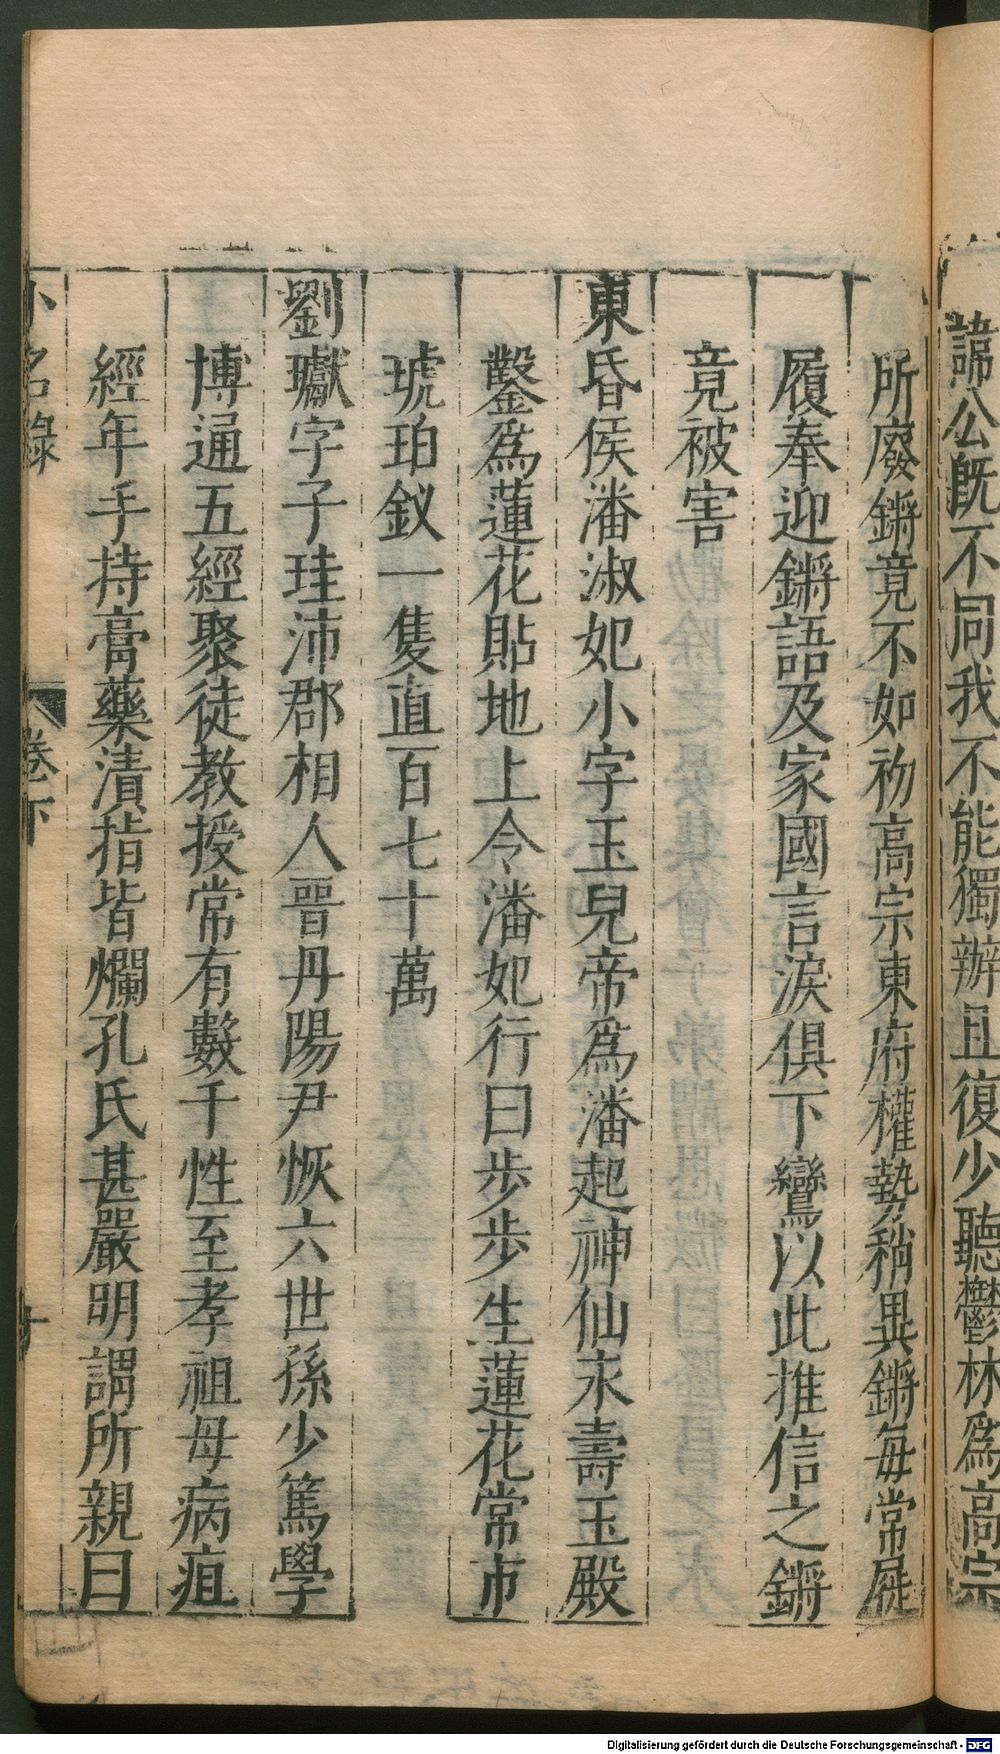 諱公既不同我不能獨辦且復少聽鬱林為高宗
所廢鏘竟不如初高宗東府權勢稍異鏘每常屣
履奉迎鏘語及家國言淚俱下鸞以此推信之鏘
竟被害
東昏侯潘淑妃小字玉兒帝為潘起神仙永壽玉殿
鑿為蓮花貼地上令潘妃行曰步步生蓮花常市
琥珀釵一隻直百七十萬
劉瓛字子珪沛郡相人晉丹陽尹恢六世孫少篤學
博通五經聚徒教授常有數千性至孝祖母病疽
經年手持膏藥漬指皆爛孔氏甚嚴明謂所親曰
小名錄 卷下
Digitalisierung gefördert durch die Deutsche Forschungsgemeinschaft - DFG